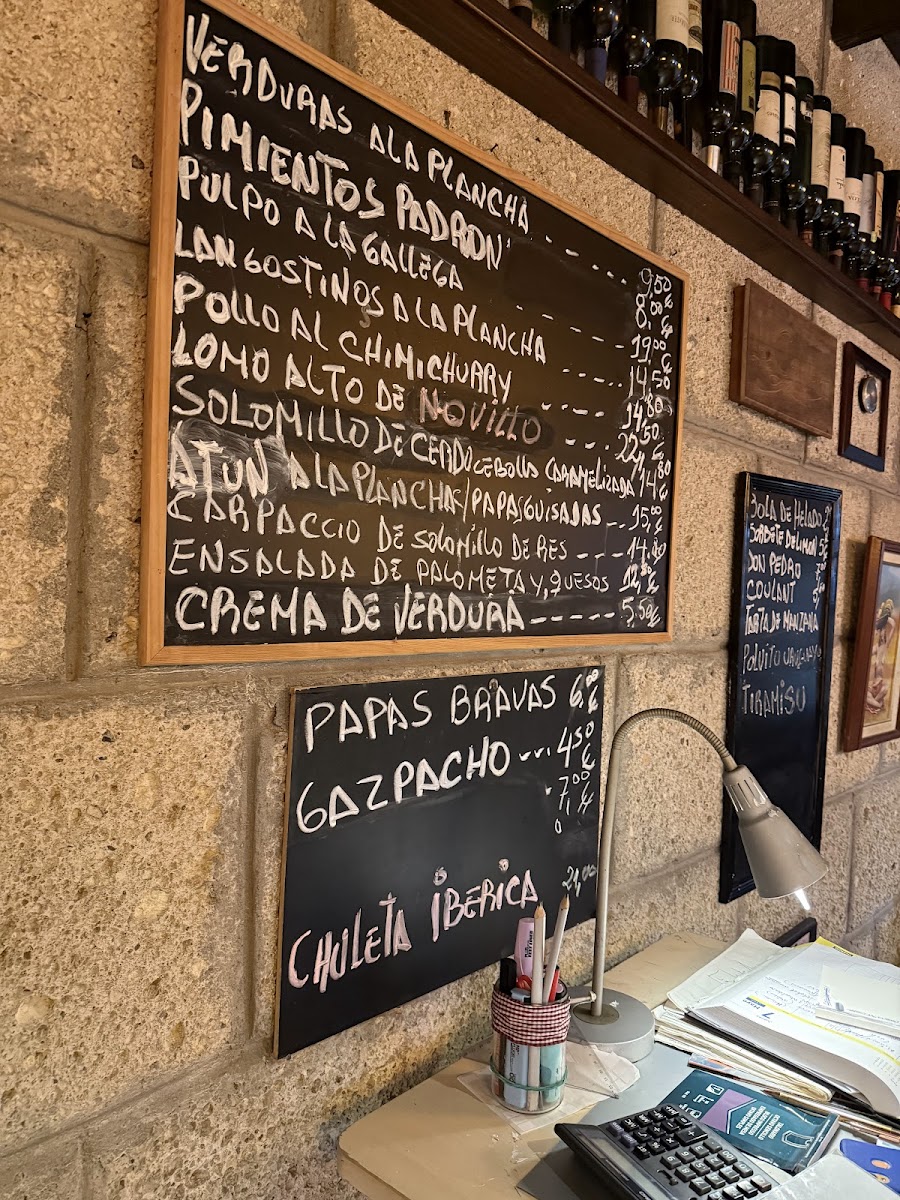 VERDURAS A LA PLANCHA ---- 9,50€
PIMIENTOS PADRON' -- 8,00€
PULPO A LA GALLEGA -- 19,00€
LANGOSTINOS A LA PLANCHA ---- 14,50
POLLO AL CHIMICHURRY ---- 14,80
LOMO ALTO DE NOVILLO --- 22,50€
SOLOMILLO DE CERDO CEBOLLA CARAMELIZADA 14,80
ATUN A LA PLANCHA/PAPAS GUISADAS -- 15,00€
CARPACCIO DE SOLOMILLO DE RES --- 14,90
ENSALADA DE PALOMETA Y QUESOS 12,50€
CREMA DE VERDURA ----- 5.50€
PAPAS BRAVAS 6,00€
GAZPACHO --- 4,50€
7,00€
CHULETA IBERICA 21,00
BOLA DE HELADO
SORBETE DE LIMON
DON PEDRO
COULANT
TARTA DE MANZANA
POLVITO URUGUAYO
TIRAMISU
7